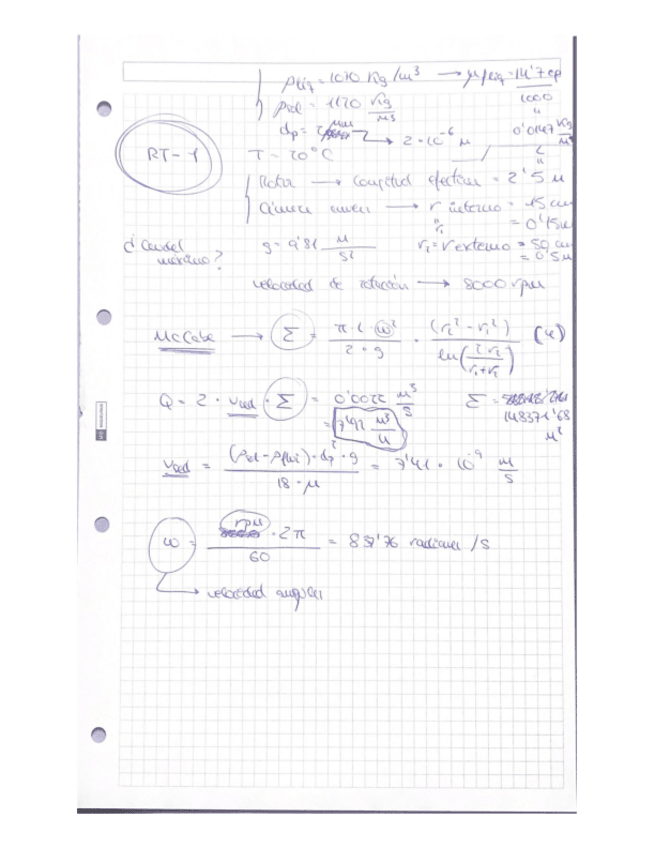 ρliq = 1070 Kg/m³ → μliq = 14'7 cp
1000
ρsol = 1120 Kg/m³
0'0147 Kg
dp = 2 μm → 2·10⁻⁶ m
RT-1
T = 20°C
Rotor → Longitud efectiva = 2'5 m
→ r interno = 15 cm
r₁ = 0'15 m
¿Caudal máximo?
g = 9'81 m/s²
r₂ = r externo = 50 cm
= 0'5 m
velocidad de rotación → 8000 rpm
McCabe → Σ = π·L·ω² / 2·g · (r₂² - r₁²) / ln(2·r₂ / r₁+r₂) (4)
Q = 2 · vsed · Σ = 0'0022 m³/s
= 7'92 m³/h
Σ =
148371'68
m²
vsed = (ρsol - ρliq)·dp²·g / 18·μ = 7'41 · 10⁻⁹ m/s
ω = rpm · 2π / 60 = 837'76 radianes /s
→ velocidad angular